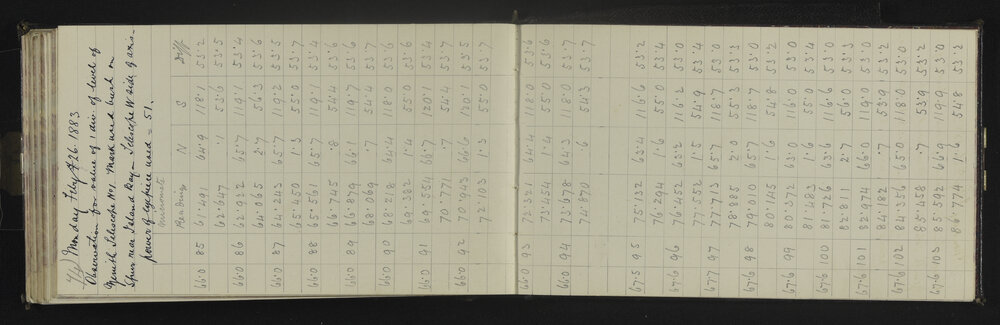 4/) Monday Feby 26 1883
Observation for value of 1 div. of level of
Zenith Telescope No 1. Mark used bush on
Spur near Island Bay. Telescope W side of axis -
power of eyepiece used = 51.
Reading N S Diff.
Micrometer
66.0 85 61.491 64.9 118.1 53.2
62.647 .1 53.6 53.5
66.0 86 62.932 65.7 119.1 53.4
64.035 2.7 56.3 53.6
66.0 87 64.243 65.7 119.2 53.5
65.450 1.3 55.0 53.7
66.0 88 65.551 65.7 119.1 53.4
66.745 .8 54.4 53.6
66.0 89 66.879 66.1 119.7 53.6
68.069 .7 54.4 53.7
66.0 90 68.218 64.4 118.0 53.6
69.382 1.4 55.0 53.6
66.0 91 69.554 66.7 120.1 53.4
70.771 .7 54.4 53.7
66.0 92 70.943 66.6 120.1 53.5
72.103 1.3 55.0 53.7
66.0 93 72.321 64.4 118.0 53.6
73.454 1.4 55.0 53.6
66.0 94 73.678 64.3 118.0 53.7
74.870 .6 54.3 53.7
67.5 95 75.132 63.4 116.6 53.2
76.294 1.6 55.0 53.4
67.6 96 76.452 63.2 116.2 53.0
77.552 1.5 54.9 53.4
67.6 97 77.713 65.7 118.7 53.0
78.885 2.0 55.3 53.3
67.6 98 79.010 65.7 118.7 53.0
80.145 1.6 54.8 53.2
67.6 99 80.372 63.0 116.0 53.0
81.583 1.6 55.0 53.4
67.6 100 81.726 63.6 116.6 53.0
82.812 2.7 56.0 53.3
67.6 101 82.974 66.0 119.0 53.0
84.182 .7 53.9 53.2
67.6 102 84.356 65.0 118.0 53.0
85.458 .7 53.9 53.2
67.6 103 85.592 66.9 119.9 53.0
86.774 1.6 54.8 53.2